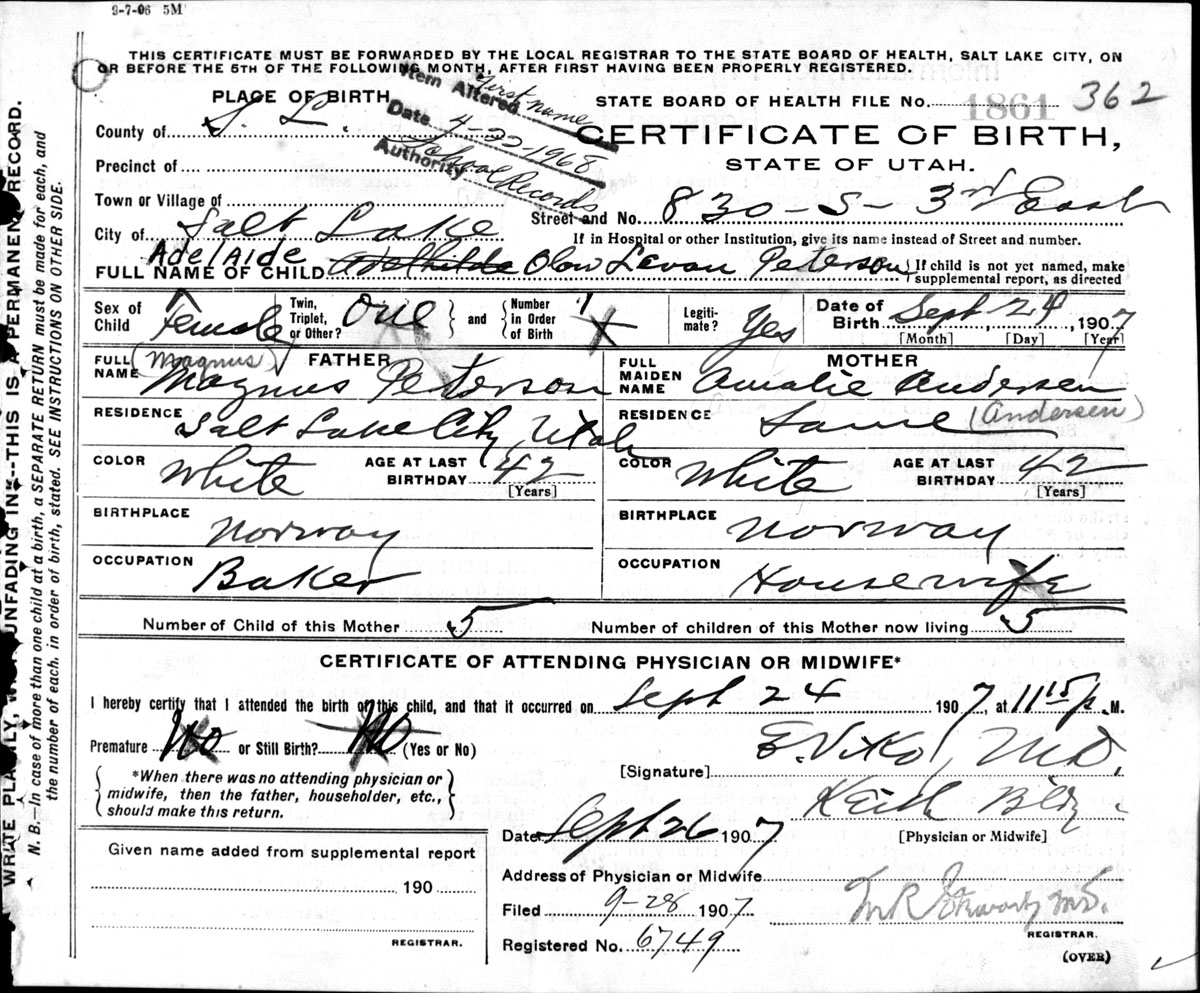 9-7-06 5M
THIS CERTIFICATE MUST BE FORWARDED BY THE LOCAL REGISTRAR TO THE STATE BOARD OF HEALTH, SALT LAKE CITY, ON
OR BEFORE THE 5TH OF THE FOLLOWING MONTH, AFTER FIRST HAVING BEEN PROPERLY REGISTERED.
Item Altered First name
Date 4-22-1968
Authority School Records
PLACE OF BIRTH
STATE BOARD OF HEALTH FILE No. 1861 362
County of S. L.
CERTIFICATE OF BIRTH,
STATE OF UTAH.
Precinct of
Town or Village of
Street and No. 830-S-3rd East
City of Salt Lake
If in Hospital or other Institution, give its name instead of Street and number.
Adelaide
FULL NAME OF CHILD Adelhilde Olow Levan Peterson
If child is not yet named, make
supplemental report, as directed
Sex of Child Female
Twin, Triplet, or Other? One and Number in Order of Birth 1
Legitimate? Yes
Date of Birth Sept 24, 1907
[Month] [Day] [Year]
FATHER
FULL NAME (Magnus) Magnus Peterson
RESIDENCE Salt Lake City, Utah
COLOR White AGE AT LAST BIRTHDAY 42 [Years]
BIRTHPLACE Norway
OCCUPATION Baker
MOTHER
FULL MAIDEN NAME Amalie Andersen
RESIDENCE Same (Andersen)
COLOR White AGE AT LAST BIRTHDAY 42 [Years]
BIRTHPLACE Norway
OCCUPATION Housewife
Number of Child of this Mother 5 Number of children of this Mother now living 5
CERTIFICATE OF ATTENDING PHYSICIAN OR MIDWIFE*
I hereby certify that I attended the birth of this child, and that it occurred on Sept 24 1907, at 11 15 p. M.
Premature No or Still Birth? No (Yes or No)
*When there was no attending physician or
midwife, then the father, householder, etc.,
should make this return.
[Signature] E. Viko, M.D.
Keith Bldg.
[Physician or Midwife]
Date Sept 26 1907
Given name added from supplemental report
190
REGISTRAR.
Address of Physician or Midwife
Filed 9-28 1907
Registered No. 6749
M.D.
REGISTRAR.
(OVER)
WRITE PLAINLY, UNFADING INK--THIS IS A PERMANENT RECORD.
N. B.—In case of more than one child at a birth, a SEPARATE RETURN must be made for each, and
the number of each, in order of birth, stated. SEE INSTRUCTIONS ON OTHER SIDE.